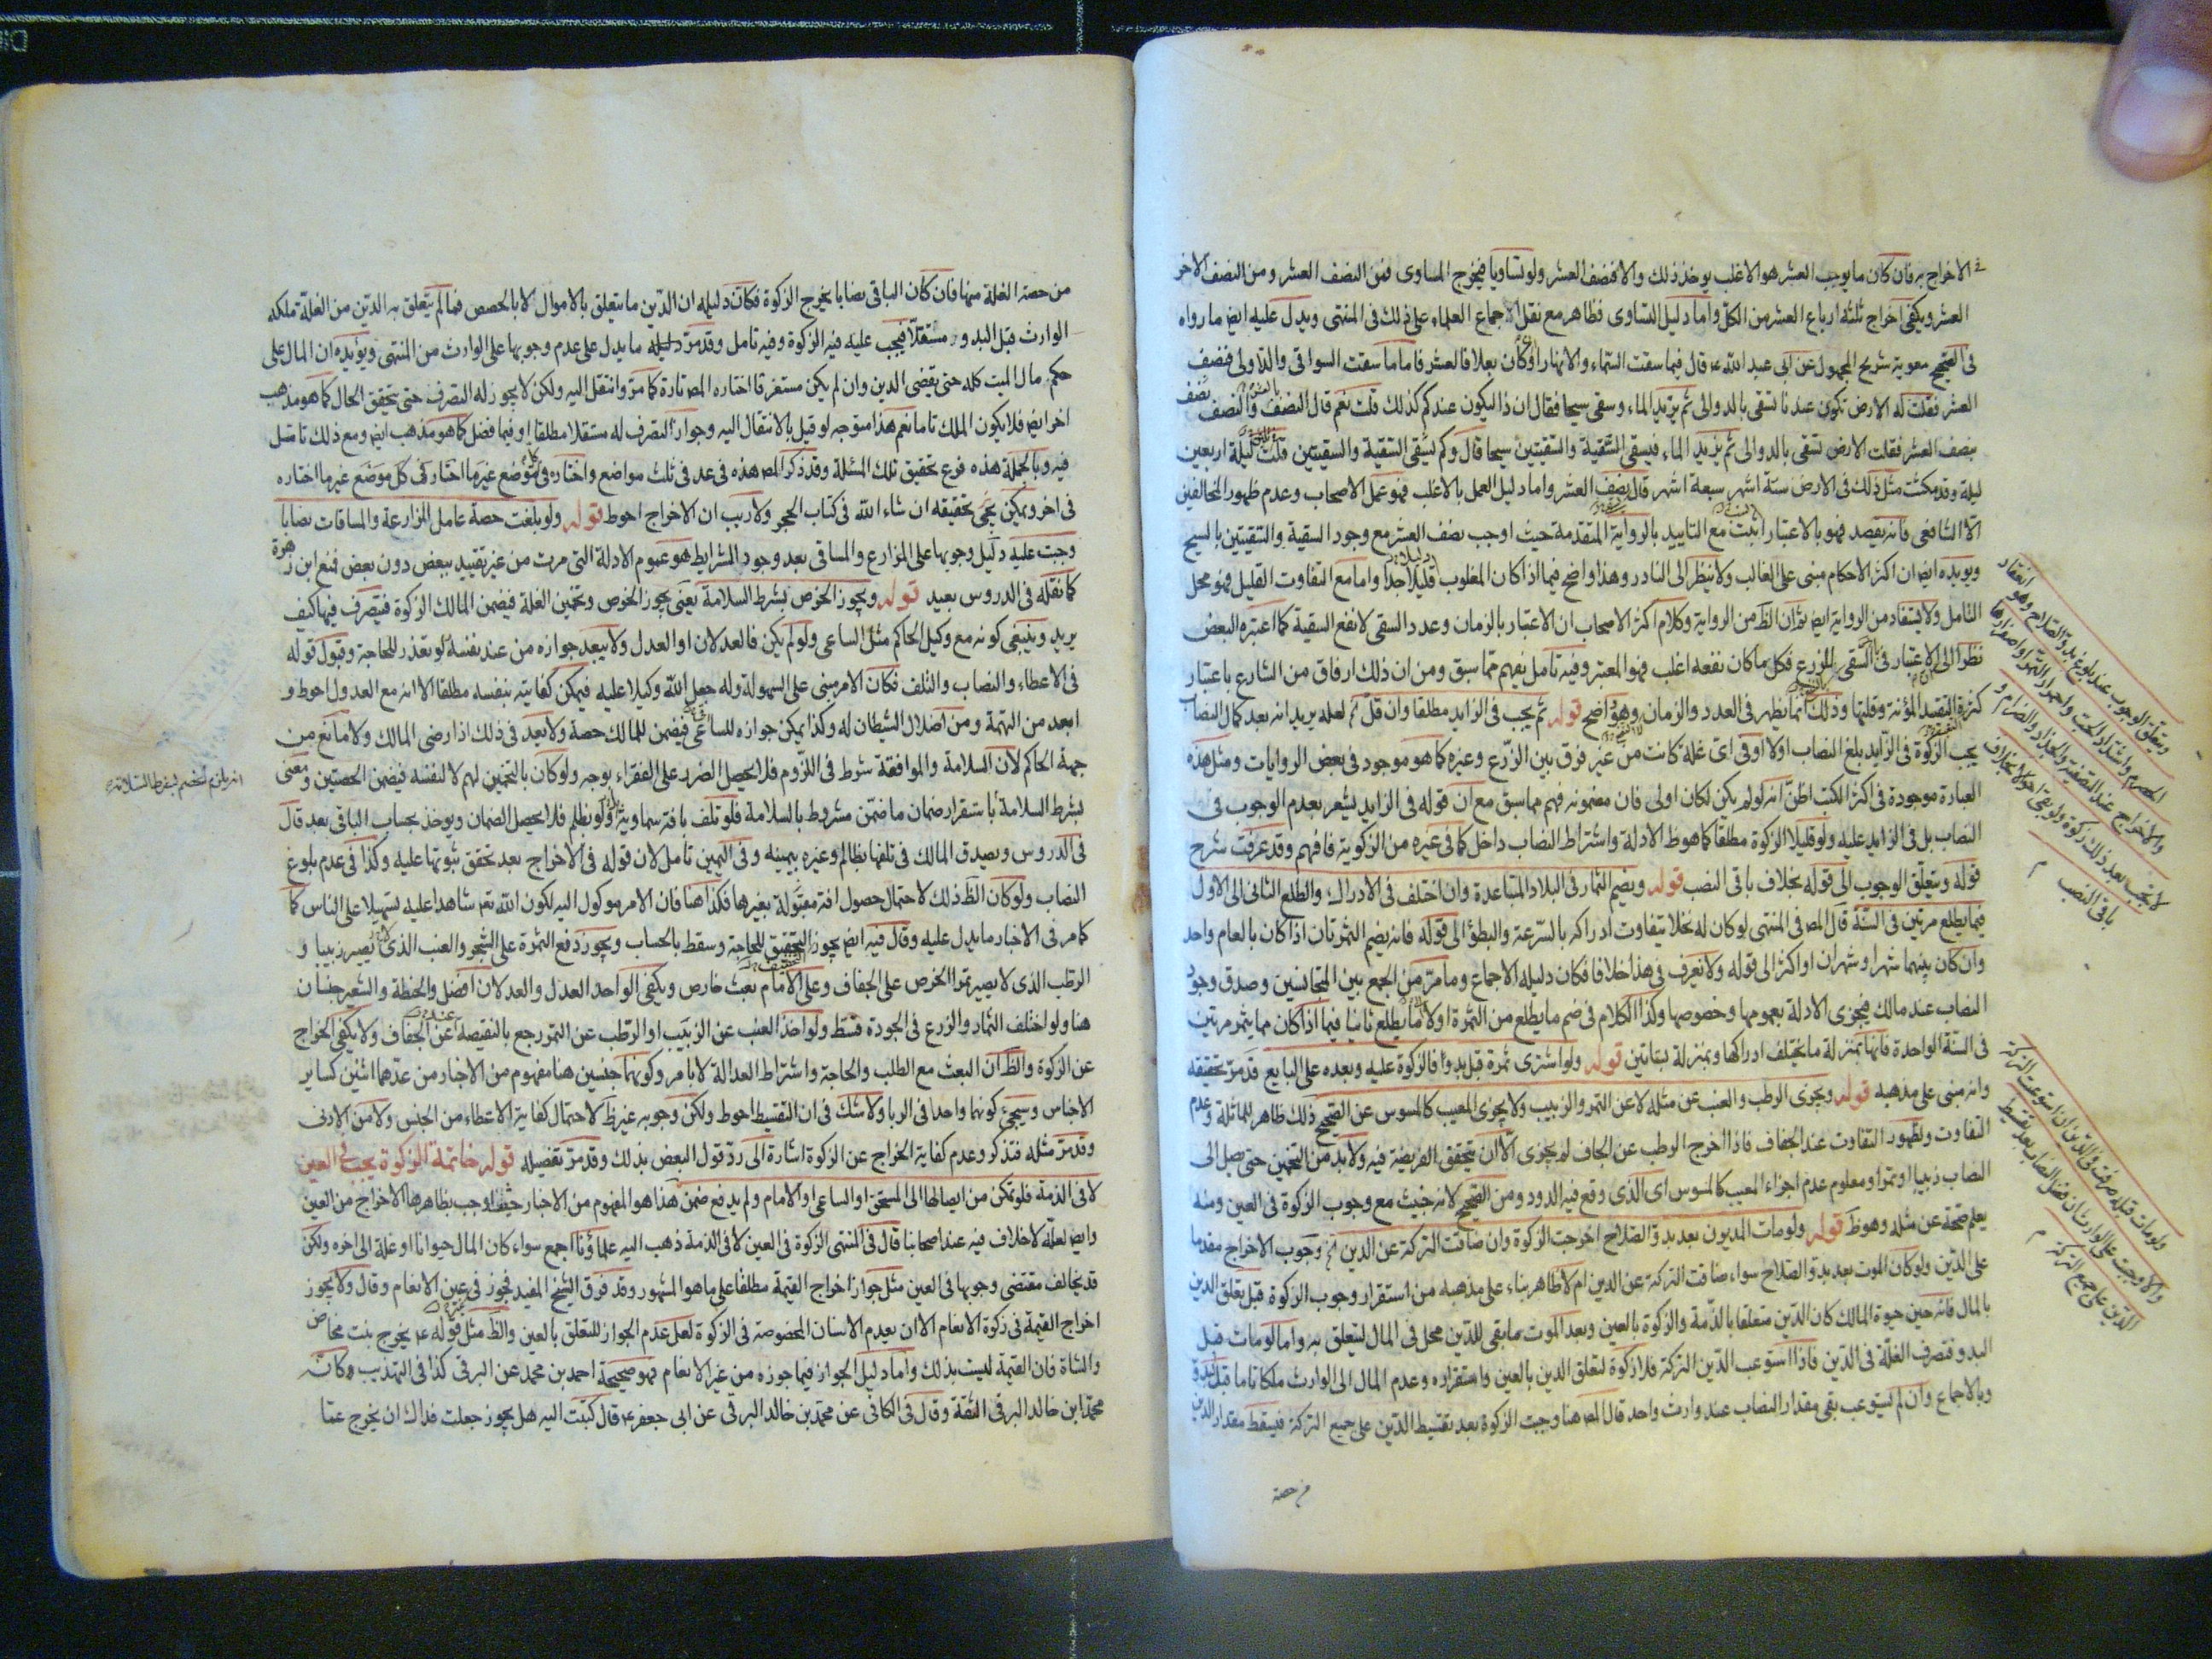 الاخراج به فان كان ما يوجب العشر هو الاغلب يوخذ ذلك والا فنصف العشر ولو تساويا فيخرج المساوى فمن النصف العشر ومن النصف الاخر
العشر ويكفى اخراج ثلثة ارباع العشر من الكل واما دليل التساوى فظاهر مع نقل الاجماع العلماء على ذلك فى المنتهى ويدل عليه ايض ما رواه
فى الصحيح معوية شريح المجهول عن ابى عبد الله ع قال فيما سقت السماء والانهار او كان بعلا فالعشر فاما ما سقت السوانى والدوالى فنصف
العشر فقلت له الارض تكون عندنا تسقى بالدوالى ثم يزيد الماء وسقى سيحا فقال ان ذا ليكون عندكم كذلك قلت نعم قال النصف والنصف نصف
بنصف العشر فقلت الارض تسقى بالدوالى ثم يزيد الماء فيسقى السقية والسقيتين سيحا قال وكم تسقى السقية والسقيتين قلت ثلثين ليلة اربعين
ليلة وقد مكثت مثل ذلك فى الارض ستة اشهر سبعة اشهر قال نصف العشر واما دليل العمل بالاغلب فهو عمل الاصحاب وعدم ظهور المخالفين
الا الشافعى فانه يقصد فهو بالاعتبار اثبت مع التاييد بالرواية المتقدمة حيث اوجب نصف العشر مع وجود السقية والسقيتين بالسيح
ويويده ايض ان اكثر الاحكام مبنى على الغالب ولا ينظر الى النادر وهذا واضح فيما اذا كان المغلوب قليلا جدا واما مع التفاوت القليل فهو محل
التامل ولا يستفاد من الرواية ايض ثم ان الظ من الرواية وكلام اكثر الاصحاب ان الاعتبار بالزمان وعدد السقى لا نفع السقية كما اعتبره البعض
نظرا الى الاعتبار فى السقى للزرع فكل ما كان نفعه اغلب فهو المعتبر وفيه تامل يفهم مما سبق ومن ان ذلك ارفاق من الشارع باعتبار
كثرة المؤنة وقلتها وذلك انما يظهر فى العدد والزمان وهو واضح قوله ثم يجب فى الزايد مطلقا وان قل لعله يريد انه بعد كمال النصاب
يجب الزكوة فى الزايد بلغ النصاب اولا او فى اى غلة كانت من غير فرق بين الزرع وغيره كما هو موجود فى بعض الروايات ومثل هذه
العبارة موجودة فى اكثر الكتب اظن انه لو لم يكن لكان اولى فان مضمونه فهم مما سبق مع ان قوله فى الزايد يشعر بعدم الوجوب فى
النصاب بل فى الزايد عليه ولو قليلا الزكوة مطلقا كما هو ظ الادلة واشتراط النصاب داخل كما فى غيره من الزكوية فافهم وقد عرفت شرح
قوله ويتعلق الوجوب الى قوله بخلاف باقى النصب قوله ويضم الثمار فى البلاد المتباعدة وان اختلف فى الادراك والطلع الثانى الى الاول
فيما يطلع مرتين فى السنة قال المص فى المنتهى لو كان له نخلا يتفاوت ادراكه بالسرعة والبطؤ الى قوله فانه يضم الثمرتان اذا كان بالعام واحد
وان كان بينهما شهرا وشهران او اكثر الى قوله ولا نعرف فى هذا خلافا فكان دليله الاجماع وما مر من الجمع بين المتجانسين وصدق وجود
النصاب عند مالك فيجزى الادلة بعمومها وخصوصها وكذا الكلام فى ضم ما يطلع من الثمرة اولا ما يطلع ثانيا فيما اذا كان مما يثمر مرتين
فى السنة الواحدة فانها بمنزلة ما يختلف ادراكها وبمنزلة بستانين قوله ولو اشترى ثمرة قبل بدوا فالزكوة عليه وبعده على البايع قد مر تحقيقه
وانه مبنى على مذهبه قوله ويجزى الرطب والعنب عن مثله لا عن التمر والزبيب ولا يجزى المعيب كالمسوس عن الصحيح ذلك ظاهر للمماثلة وعدم
التفاوت ولظهور التفاوت عند الجفاف فاذا اخرج الرطب عن الجاف لم يجزى الا ان يتحقق الفريضة فيه ولا بد من التخمين حتى يصل الى
النصاب زبيبا او تمرا ومعلوم عدم اجزاء المعيب كالمسوس اى الذى وقع فيه الدود ومن الصحيح لانه خبيث مع وجوب الزكوة فى العين ومنه
يعلم صحة عن مثله وهو ظ قوله ولو مات المديون بعد بدو الصلاح اخرجت الزكوة وان ضاقت التركة عن الدين وجوب الاخراج مقدما
على الدين ولو كان الموت بعد بدو الصلاح سواء ضاقت التركة عن الدين ام لا ظاهر بناء على مذهبه من استقرار وجوب الزكوة قبل تعلق الدين
بالمال فانه حين حيوة المالك كان الدين متعلقا بالذمة والزكوة بالعين وبعد الموت ما بقى للدين محل فى المال ليتعلق به واما لو مات قبل
البدو فتصرف الغلة فى الدين فاذا استوعب الدين التركة فلا زكوة لتعلق الدين بالعين واستقراره وعدم المال الى الوارث ملكا تاما قبل بدوة
وبالاجماع وان لم يستوعب بقى مقدار النصاب عند وارث واحد قال المص هنا وجبت الزكوة بعد تقسيط الدين على جميع التركة فيسقط مقدار الدين
من حصة
ويتعلق الوجوب عند بلوغ بدو الصلاح وهو انعقاد
الحصرم واشتداد الحب واحمرار الثمرة او اصفرارها
والاخراج عند التصفية والجذاذ والصرام و
لا يجب بعد ذلك زكوة ولو بقى احوالا بخلاف
باقى النصب
ولو مات قبله صرفت فى الدين ان استوعب التركة
والا وجبت على الوارث ان فضل النصاب بعد تقسيط
الدين على جميع التركة
من حصة الغلة منها فان كان الباقى نصابا يخرج الزكوة فكان دليله ان الدين ما يتعلق بالاموال الا بالحصص فما لم يتعلق به الدين من الغلة ملكه
الوارث قبل البدو مستقلا فيجب عليه فيه الزكوة وفيه تامل وقد مر ما يدل على عدم وجوبها على الوارث من المنتهى ويؤيده ان المال على
حكم مال الميت كله حتى يقضى الدين وان لم يكن مستغرقا اختاره المص تارة كما مر وانتقل اليه ولكن لا يجوز له التصرف حتى يتحقق الحال كما هو مذهب
اخر ايض فلا يكون الملك تاما نعم هذا متوجه لو قيل بالانتقال اليه وجواز التصرف له مستقلا مطلقا او فيما فضل كما هو مذهب ايض ومع ذلك تامل
فيه وبالجملة هذه فرع تحقيق تلك المسئلة وقد ذكر المص هذه فى عد فى ثلث مواضع واختار فى كل موضع غير ما اختاره
فى اخر ويمكن يجئ تحقيقه ان شاء الله فى كتاب الحجر ولا ريب ان الاخراج احوط قوله ولو بلغت حصة عامل المزارعة والمساقات نصابا
وجبت عليه دليل وجوبها على المزارع والمساقى بعد وجود الشرايط هو عموم الادلة التى مرت من غير تقييد ببعض دون بعض فمنع ابن زهرة
كما نقله فى الدروس بعيد قوله ويجوز الخرص بشرط السلامة يعنى يجوز الخرص وتخمين الغلة فيضمن المالك الزكوة فيتصرف فيها كيف
يريد وينبغى كونه مع وكيل الحاكم مثل الساعى ولو لم يكن فالعدلان او العدل ولا يبعد جوازه من عند نفسه لو تعذر للحاجة وقبول قوله
فى الاعطاء والنصاب والتلف فكان الامر مبنى على السهولة وله جعل الله وكيلا عليه فيمكن كفايته بنفسه مطلقا الا انه مع العدول احوط و
ابعد من التهمة ومن اضلال الشيطان له وكذا يمكن جوازه للساعى فيضمن للمالك حصة ولا بعد فى ذلك اذا رضى المالك ولا مانع من
جهة الحاكم لان السلامة والموافقة شرط فى اللزوم فلا يحصل الضرر على الفقراء بوجه ولو كان بالتخمين لهم لا لنفسه فيضمن الحصتين ومعنى
بشرط السلامة استقرار ضمان ما ضمن مشروط بالسلامة فلو تلف بافة سماوية او ولو بظلم فلا يحصل الضمان ويوخذ بحساب الباقى بعد قال
فى الدروس ويصدق المالك فى تلفها بظالم وغيره بيمينه وفى اليمين تامل لان قوله فى الاخراج بعد تحقق ثبوتها عليه وكذا فى عدم بلوغ
النصاب ولو كان الظ ذلك لاحتمال حصول افة مقبولة بغيرها فكذا هنا فان الامر موكول اليه لكون الله تعم شاهدا عليه تسهيلا على الناس كما
كما مر فى الاخبار ما يدل عليه وقال فيه ايض يجوز للحاجة وسقط بالحساب ويجوز دفع الثمرة على الشجر والعنب الذى لا يصير زبيبا و
الرطب الذى لا يصير تمرا الخرص على الجفاف وعلى الامام بعث خارص ويكفى الواحد العدل والعدلان افضل والحنطة والشعير جنسان
هنا ولو اختلف الثمار والزرع فى الجودة قسط ولو اخذ العنب عن الزبيب او الرطب عن التمر رجع بالنقيصة عن الجفاف ولا يكفى الخراج
عن الزكوة والظ ان البعث مع الطلب والحاجة واشتراط العدالة لا بامر وكونهما جنسين هنا مفهوم من الاخبار من عدهما اثنين كساير
الاجناس وسيجئ كونهما واحدا فى الربا ولا شك فى ان التقسيط احوط ولكن وجوبه غير ظ لاحتمال كفاية الاعطاء من الجنس ولا من الادنى
وقد مر مثله فتذكر وعدم كفاية الخراج عن الزكوة اشارة الى رد قول البعض بذلك وقد مر تفصيله قوله خاتمة الزكوة يجب فى العين
لا فى الذمة فلو تمكن من ايصالها الى المستحق او الساعى او الامام ولم يدفع ضمن هذا هو المفهوم من الاخبار حيث اوجب بظاهرها الاخراج من العين
وايض لعله لا خلاف فيه عند اصحابنا قال فى المنتهى الزكوة فى العين لا فى الذمة ذهب اليه علماؤنا اجمع سواء كان المال حيوانا او غلة الى اخره ولكن
قد يخالف مقتضى وجوبها فى العين مثل جواز اخراج القيمة مطلقا على ما هو المشهور وقد فرق الشيخ المفيد فجوز فى عين الانعام وقال ولا يجوز
اخراج القيمة فى زكوة الانعام الا ان يعدم الاسنان المخصوصة فى الزكوة لعل عدم الجواز للتعلق بالعين والظ مثل قوله ع يخرج بنت مخاض
والشاة فان القيمة ليست بذلك واما دليل الجواز فيما جوزه من غير الانعام فهو صحيحة احمد بن محمد عن البرقى كذا فى التهذيب وكانه
محمد ابن خالد البرقى الثقة وقال فى الكافى عن محمد بن خالد البرقى عن ابى جعفر ع قال كتبت اليه هل يجوز جعلت فداك ان يخرج عما